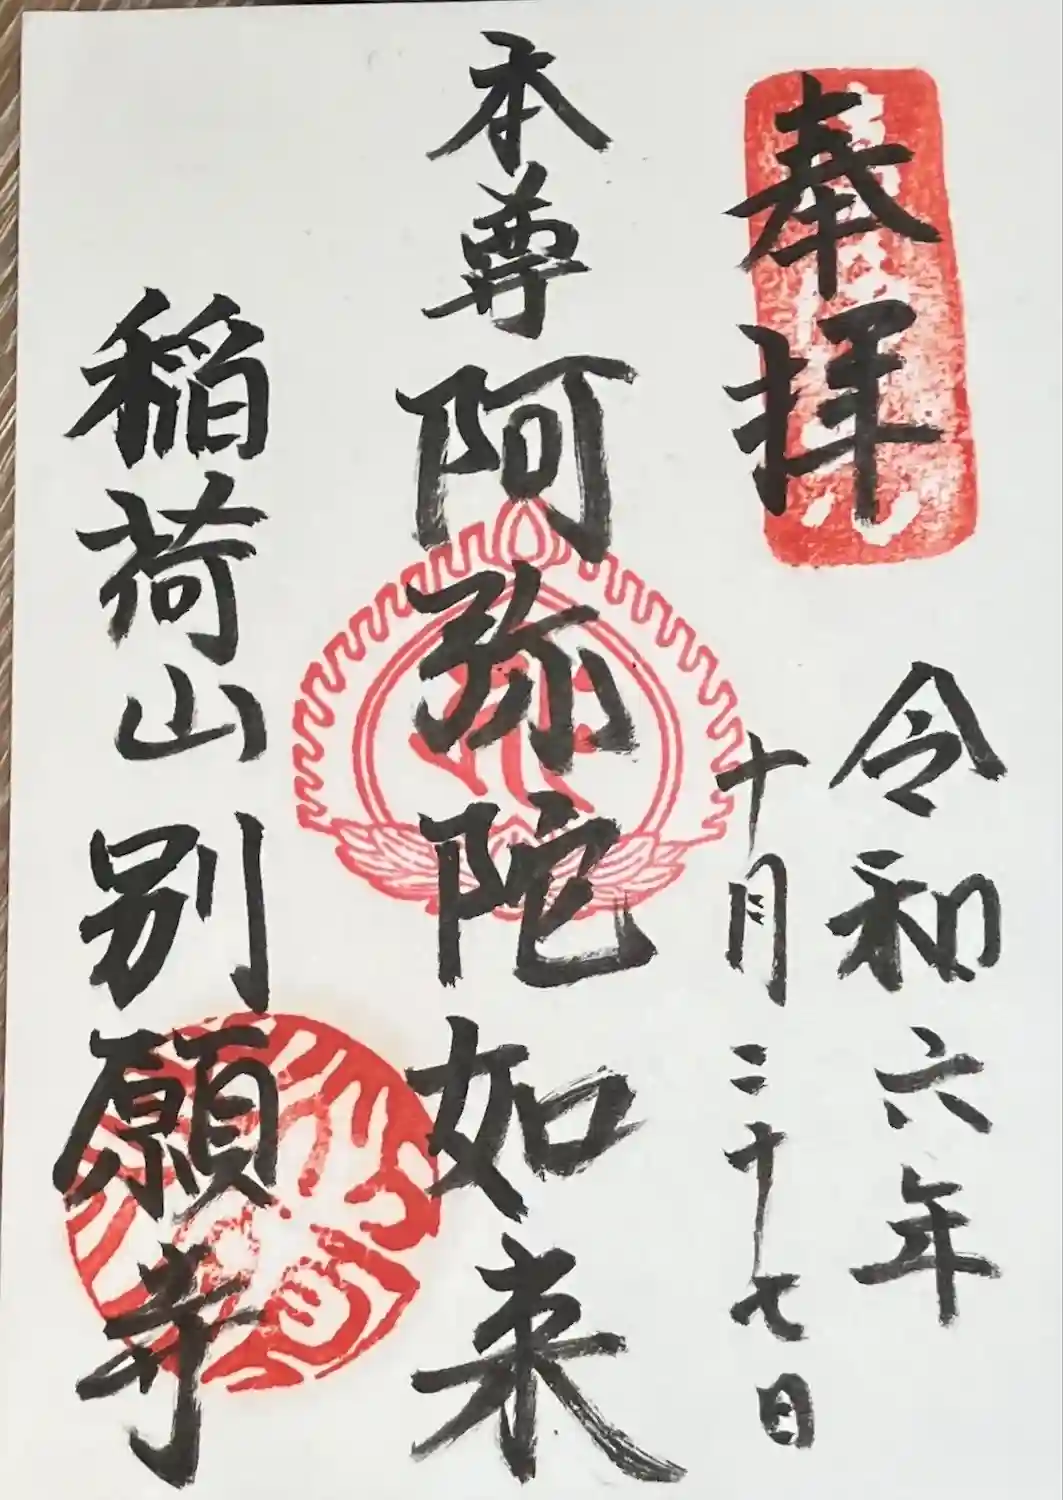 奉拝
令和六年
十月二十七日
本尊阿弥陀如来
稲荷山別願寺